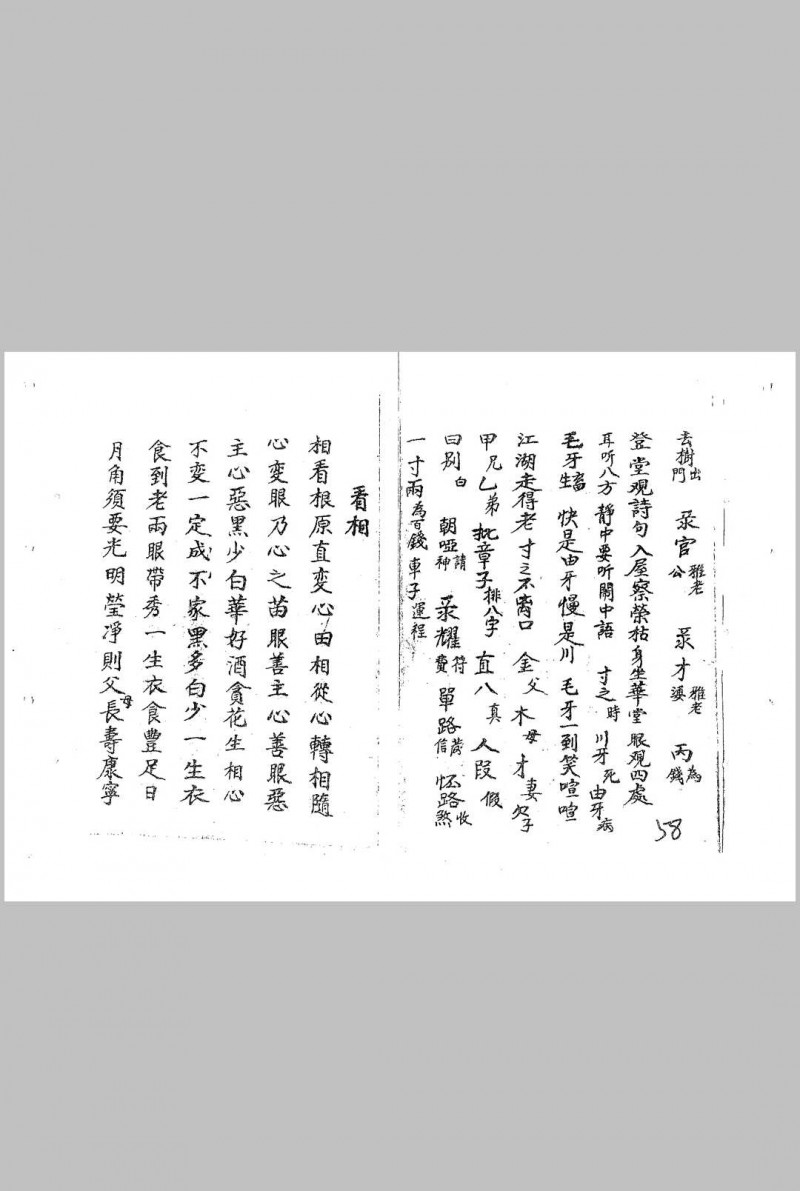 去樹門出 汞官公雅老 汞才婆雅老 丙為錢
登堂观詩句入屋察榮枯身坐華堂眼观四處
耳听八方静中要听鬧中語 寸之時 川牙死 由牙病
毛牙生畜 快是由牙慢是川 毛牙一到笑喧喧
江湖走得老寸之不离口 金父木母才妻欠子
甲兄乙弟批章子排八字直八真人段假
曰别白 朝哑請神 汞耀符費 單路薦信 怀路收煞
一寸両為百錢車子運程
58
看相
相看根原直変心由相從心轉相隨
心变眼乃心之苗眼善主心善眼惡
主心惡黑少白華好酒貪花生相心
不变一定成不家黑多白少一生衣
食到老両眼帶秀一生衣食豐足日
月角須要光明瑩凈則父母長壽康寧